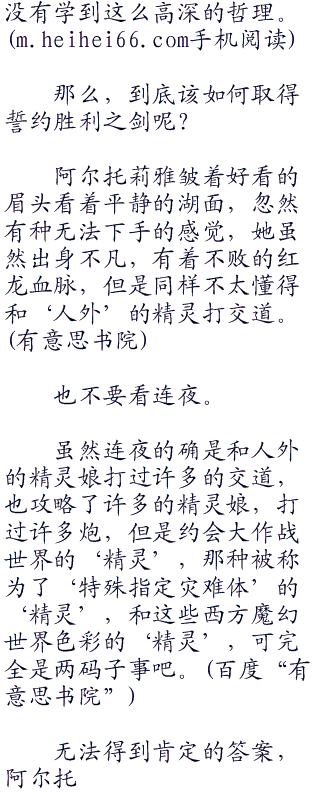 没有学到这么高深的哲理。
(m.heihei66.com手机阅读)
那么，到底该如何取得
誓约胜利之剑呢？
阿尔托莉雅皱着好看的
眉头看着平静的湖面，忽然
有种无法下手的感觉，她虽
然出身不凡，有着不败的红
龙血脉，但是同样不太懂得
和‘人外’的精灵打交道。
(有意思书院)
也不要看连夜。
虽然连夜的确是和人外
的精灵娘打过许多的交道，
也攻略了许多的精灵娘，打
过许多炮，但是约会大作战
世界的‘精灵’，那种被称
为了‘特殊指定灾难体’的
‘精灵’，和这些西方魔幻
世界色彩的‘精灵’，可完
全是两码子事吧。(百度“有
意思书院”)
无法得到肯定的答案，
阿尔托